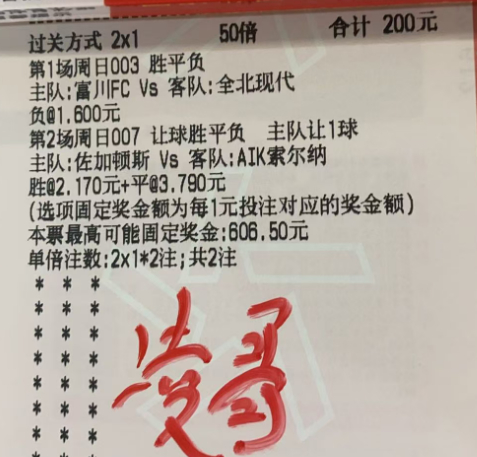 过关方式 2x1 50倍 合计 200元
第1场周日003 胜平负
主队:富川FC Vs 客队:全北现代
负@1.600元
第2场周日007 让球胜平负 主队让1球
主队:佐加顿斯 Vs 客队:AIK索尔纳
胜@2.170元+平@3.790元
(选项固定奖金额为每1元投注对应的奖金额)
本票最高可能固定奖金:606.50元
单倍注数:2x1*2注;共2注
* * *
* * *
* * *
* * *
* * *
* * *
* * *
* * *
哥